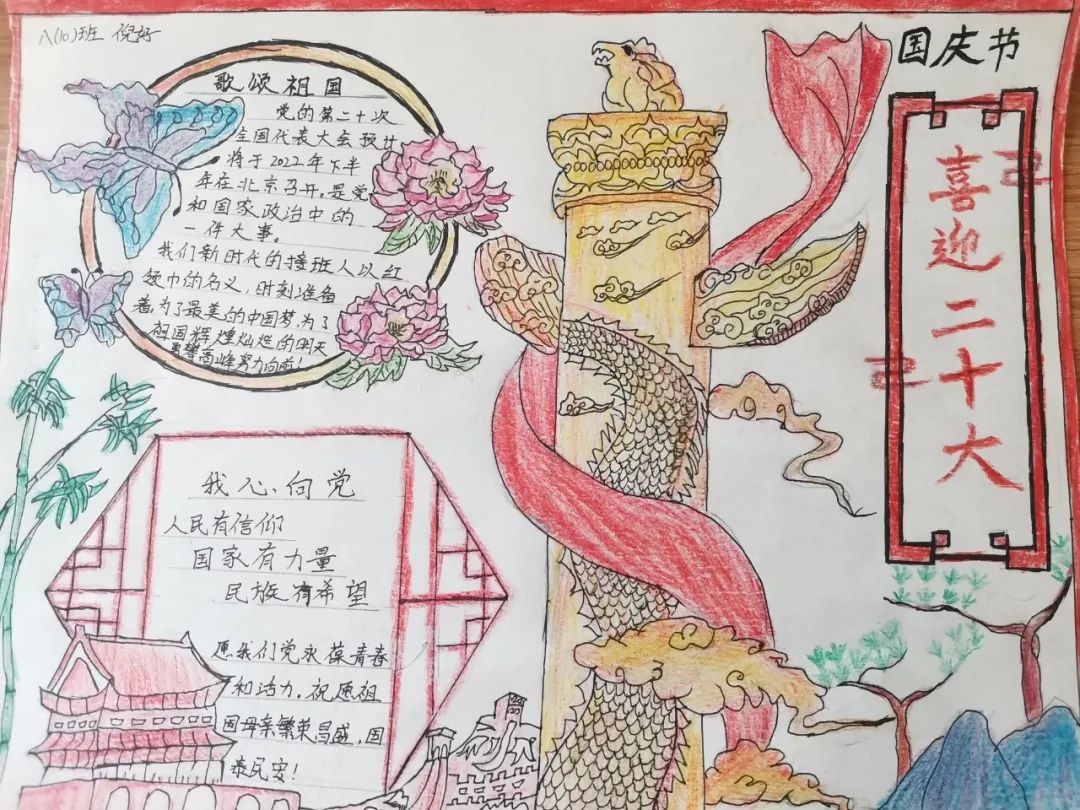 八(10)班 倪好
国庆节
喜迎二十大
歌颂祖国
党的第二十次
全国代表大会预计
将于2022年下半
年在北京召开。是党
和国家政治中的
一件大事。
我们新时代的接班人以红
领巾的名义,时刻准备
着为了最美的中国梦,为了
祖国辉煌灿烂的明天
攀高峰努力向前!
我心向党
人民有信仰
国家有力量
民族有希望
愿我们党永葆青春
和活力。祝愿祖
国母亲繁荣昌盛,国
泰民安!